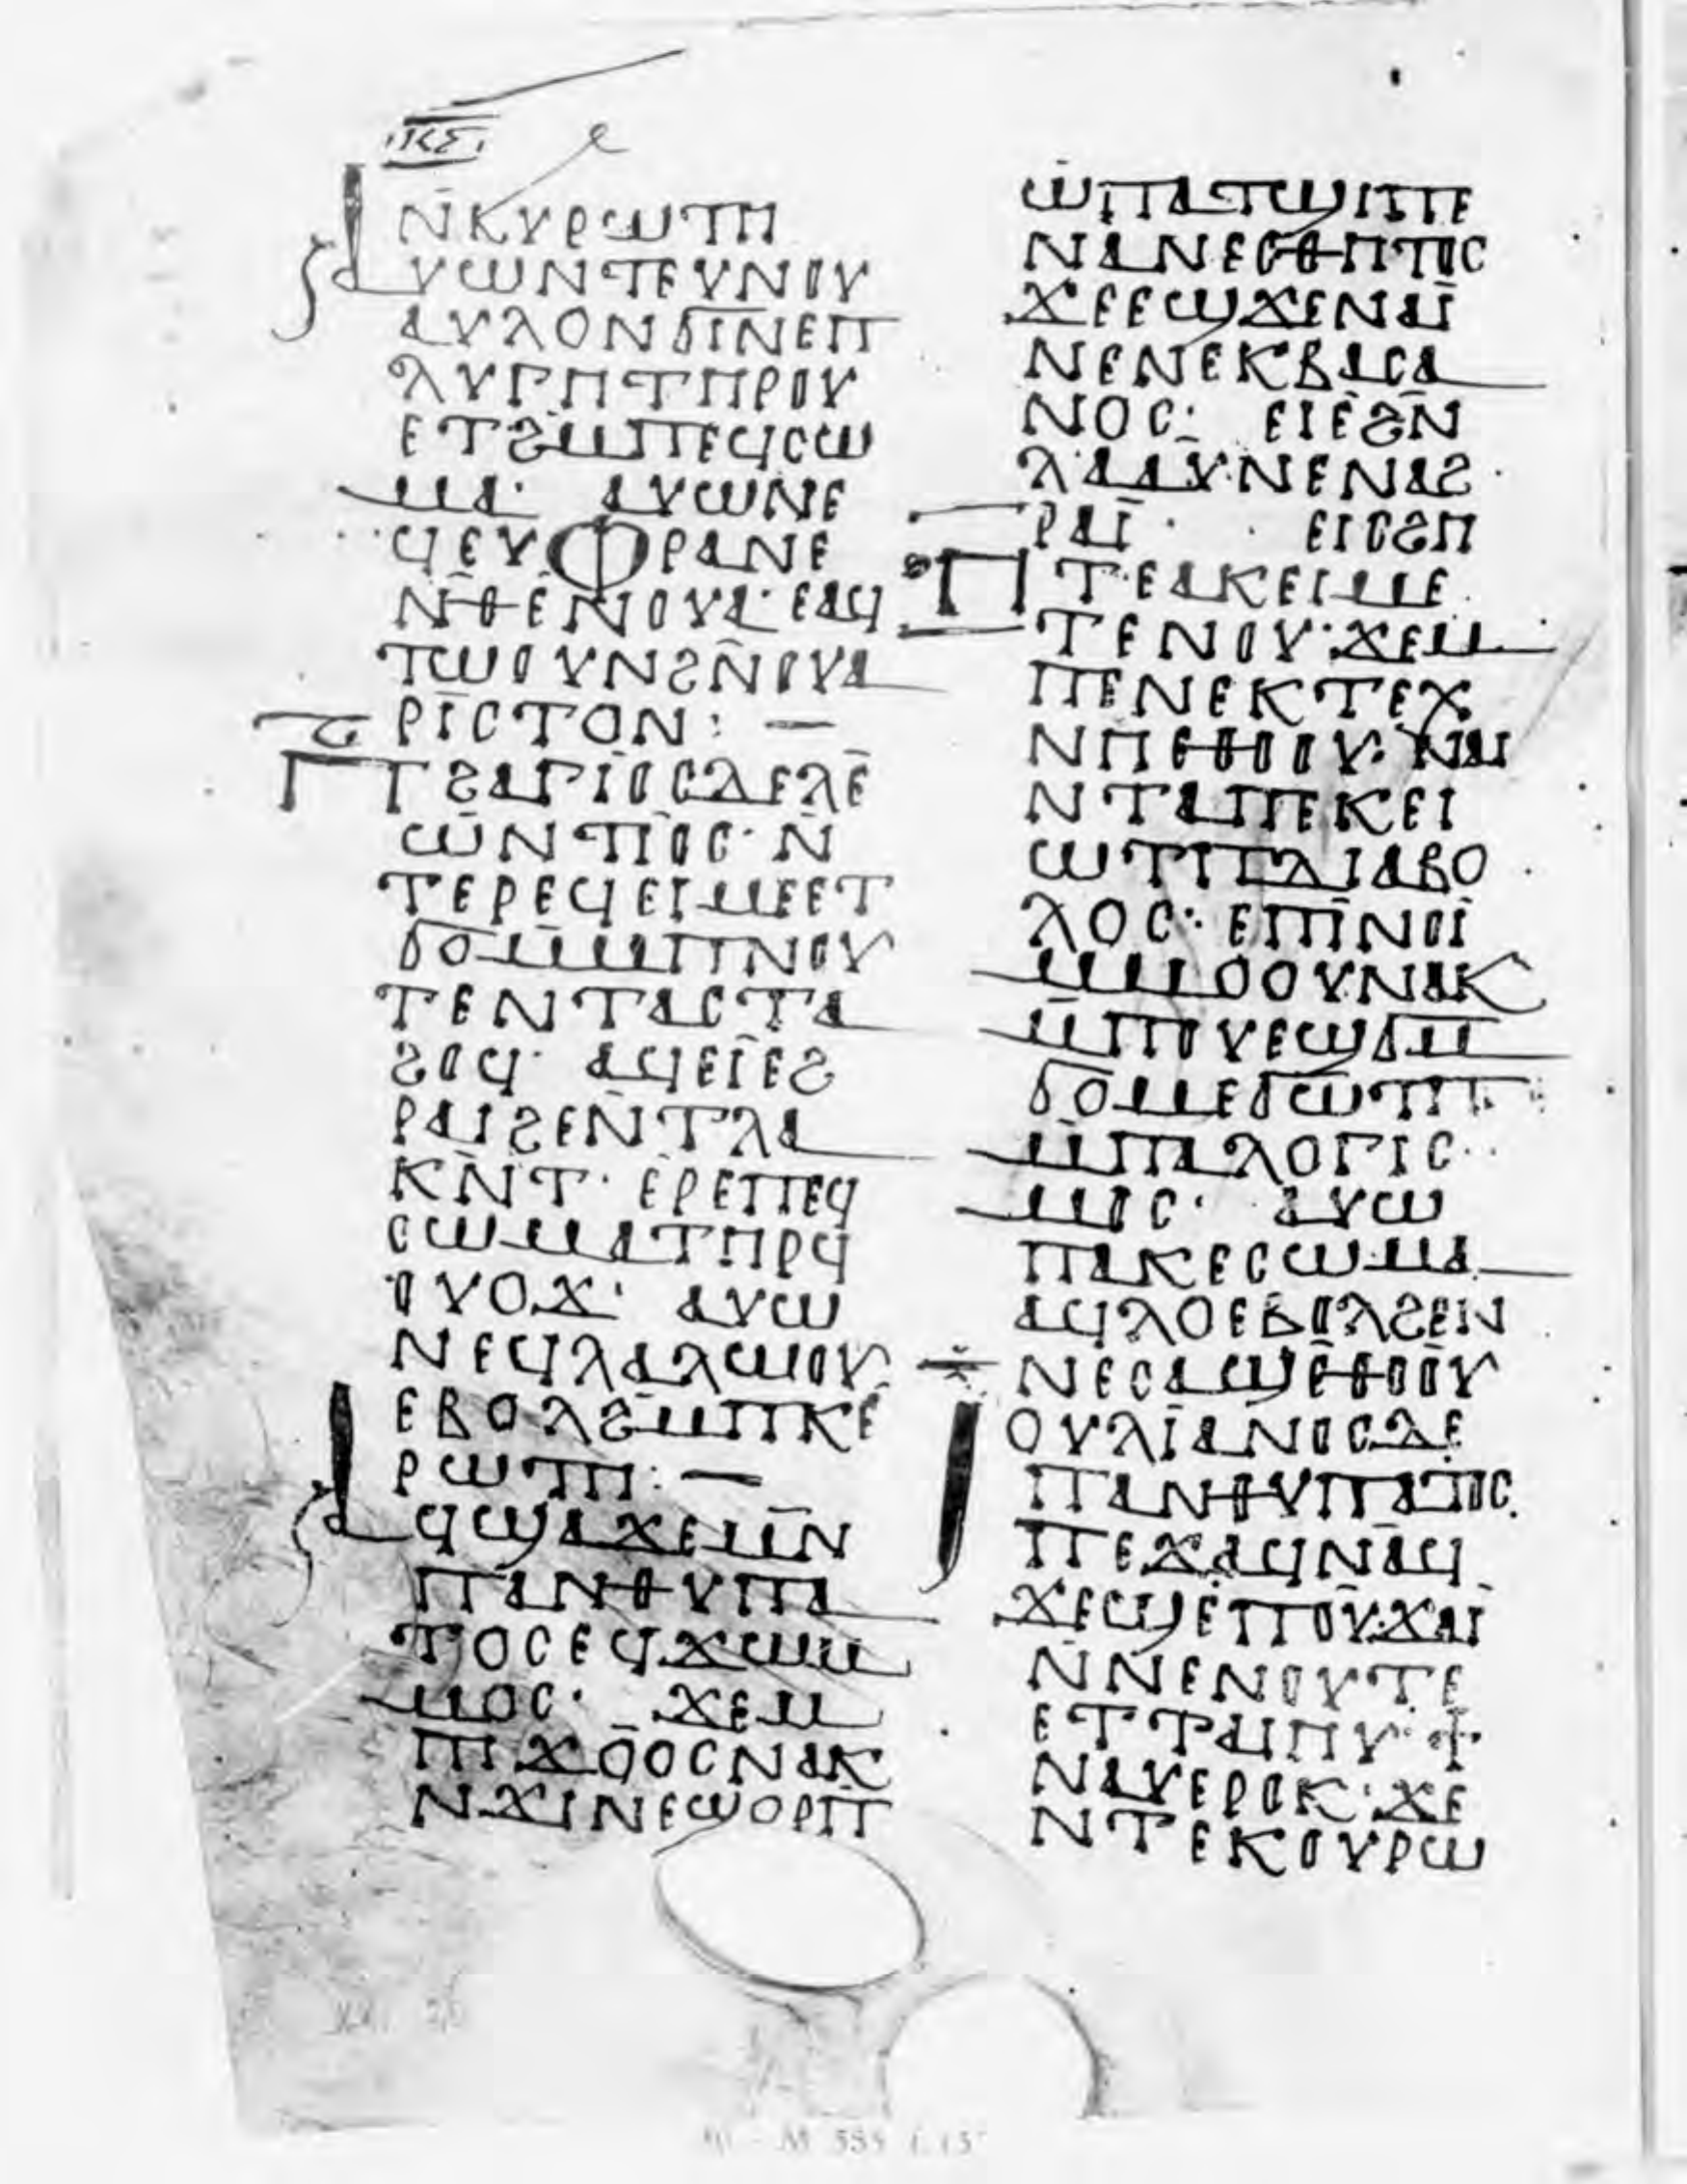 ⲕⲋ
ⲛ̄ⲕⲩⲣⲱⲧⲏ
ⲁⲩⲱⲛⲧⲉⲩⲛⲟⲩ
ⲁⲩⲗⲟⲛϭⲓⲛⲉⲡ
ⲗⲩⲅⲏⲧⲏⲣⲟⲩ
ⲉⲧϩⲙⲡⲉϥⲥⲱ
ⲙⲁ· ⲁⲩⲱⲛⲉ
ϥⲉⲩⲫⲣⲁⲛⲉ
ⲛ̄ⲑⲉⲛⲟⲩⲁ· ⲉⲁϥ
ⲧⲱⲟⲩⲛϩⲛ̄ⲟⲩⲁ
ⲣⲓⲥⲧⲟⲛ: —
ⲡϩⲁⲅⲓⲟⲥⲇⲉⲗⲉ
ⲱⲛⲧⲓⲟⲥ· ⲛ̄
ⲧⲉⲣⲉϥⲉⲓⲙⲉⲉⲧ
ϭⲟⲙⲙⲡⲛⲟⲩ
ⲧⲉⲛⲧⲁⲥⲧⲁ
ϩⲟϥ· ⲁϥⲉⲓ̈ⲉϩ
ⲣⲁⲓϩⲉⲛⲧⲗⲁ
ⲕⲛ̄ⲧ· ⲉⲣⲉⲡⲉϥ
ⲥⲱⲙⲁⲧⲏⲣϥ
ⲟⲩⲟϫ· ⲁⲩⲱ
ⲛⲉϥⲗⲁⲗⲱⲟⲩ
ⲉⲃⲟⲗϩⲙⲡⲕⲉ
ⲣⲱⲧⲏ: —
ⲁϥϣⲁϫⲉⲙⲛ̄
ⲡⲁⲛⲑⲩⲡⲁ
ⲧⲟⲥⲉϥϫⲱⲙ
ⲙⲟⲥ· ϫⲉⲙ
ⲡⲓϫⲟⲟⲥⲛⲁⲕ
ⲛϫⲓⲛⲉϣⲟⲣⲡ
ⲱ̄ⲡⲁⲧϣⲓⲡⲉ
ⲛⲁⲛⲉⲥⲑⲏⲧⲟⲥ
ϫⲉⲉϣϫⲉⲛⲁⲓ̈
ⲛⲉⲛⲉⲕⲃⲁⲥⲁ
ⲛⲟⲥ: ⲉⲓⲉϩⲛ̄
ⲗⲁⲁⲩⲛⲉⲛⲁϩ
ⲣⲁⲓ̈· ⲉⲓⲥϩⲏ
ⲏⲧⲉⲁⲕⲉⲓⲙⲉ
ⲧⲉⲛⲟⲩ· ϫⲉⲙ
ⲡⲉⲛⲉⲕⲧⲉⲭ
ⲛⲏⲉⲑⲟⲟⲩ· ⲛⲁⲓ
ⲛⲧⲁⲡⲉⲕⲉⲓ
ⲱⲧⲡⲇⲓⲁⲃⲟ
ⲗⲟⲥ: ⲉⲡⲓⲛⲟⲓ̈
ⲙⲙⲟⲟⲩⲛⲁⲕ
ⲙ̄ⲡⲟⲩⲉϣϭⲙ
ϭⲟⲙⲉϭⲱⲧⲡ
ⲙ̄ⲡⲁⲗⲟⲅⲓⲥ
ⲙⲟⲥ· ⲁⲩⲱ
ⲡⲁⲕⲉⲥⲱⲙⲁ
ⲁϥⲗⲟⲉⲃⲟⲗϩⲉⲛ
ⲛⲉⲥⲁϣⲉⲑⲟⲟⲩ
ⲓⲟⲩⲗⲓ̈ⲁⲛⲟⲥⲇⲉ
ⲡⲁⲛⲑⲩⲡⲁⲧⲟⲥ
ⲡⲉϫⲁϥⲛⲁϥ
ϫⲉϣⲉⲡⲟⲩϫⲁⲓ̈
ⲛ̄ⲛⲉⲛⲟⲩⲧⲉ
ⲉⲧⲧⲁⲓⲏⲩ· ϯ
ⲛⲁⲩⲉⲣⲟⲕ· ϫⲉ
ⲛⲧⲉⲕⲟⲩⲣⲱ